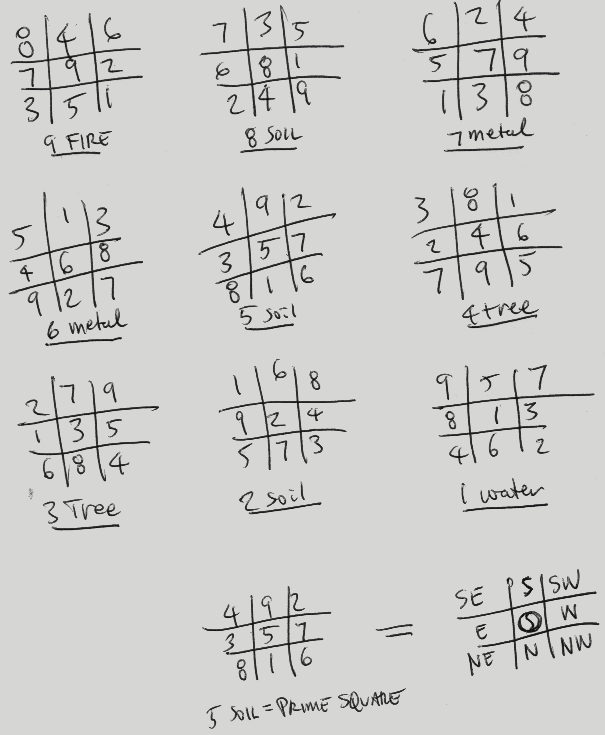 8 4 6
7 9 2
3 5 1
9 FIRE
7 3 5
6 8 1
2 4 9
8 SOIL
6 2 4
5 7 9
1 3 8
7 metal
5 1 3
4 6 8
9 2 7
6 metal
4 9 2
3 5 7
8 1 6
5 soil
3 8 1
2 4 6
7 9 5
4 tree
2 7 9
1 3 5
6 8 4
3 Tree
1 6 8
9 2 4
5 7 3
2 soil
9 5 7
8 1 3
4 6 2
1 water
4 9 2
3 5 7
8 1 6
5 SOIL = PRIME SQUARE
=
SE S SW
E 5 W
NE N NW